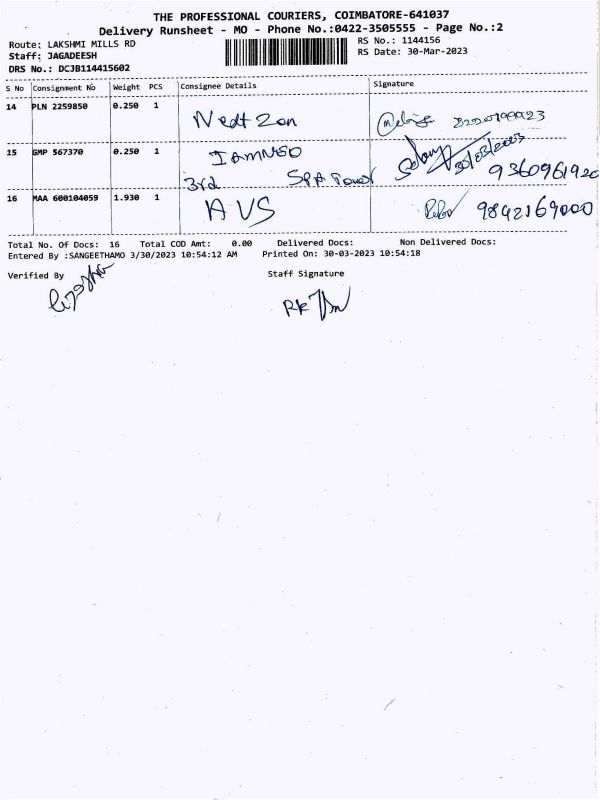 THE PROFESSIONAL COURIERS, COIMBATORE-641037
Delivery Runsheet - MO - Phone No.:0422-3505555 - Page No.:2
Route: LAKSHMI MILLS RD
RS No.: 1144156
Staff: JAGADEESH
RS Date: 30-Mar-2023
DRS No.: DCJB114415602
S No Consignment No Weight PCS Consignee Details Signature
14 PLN 2259850 0.250 1
15 GMP 567370 0.250 1
3rd 9360961920
16 MAA 600104059 1.930 1 AVS 9842169000
Total No. Of Docs: 16 Total COD Amt: 0.00 Delivered Docs: Non Delivered Docs:
Entered By :SANGEETHAMO 3/30/2023 10:54:12 AM Printed On: 30-03-2023 10:54:18
Verified By Staff Signature